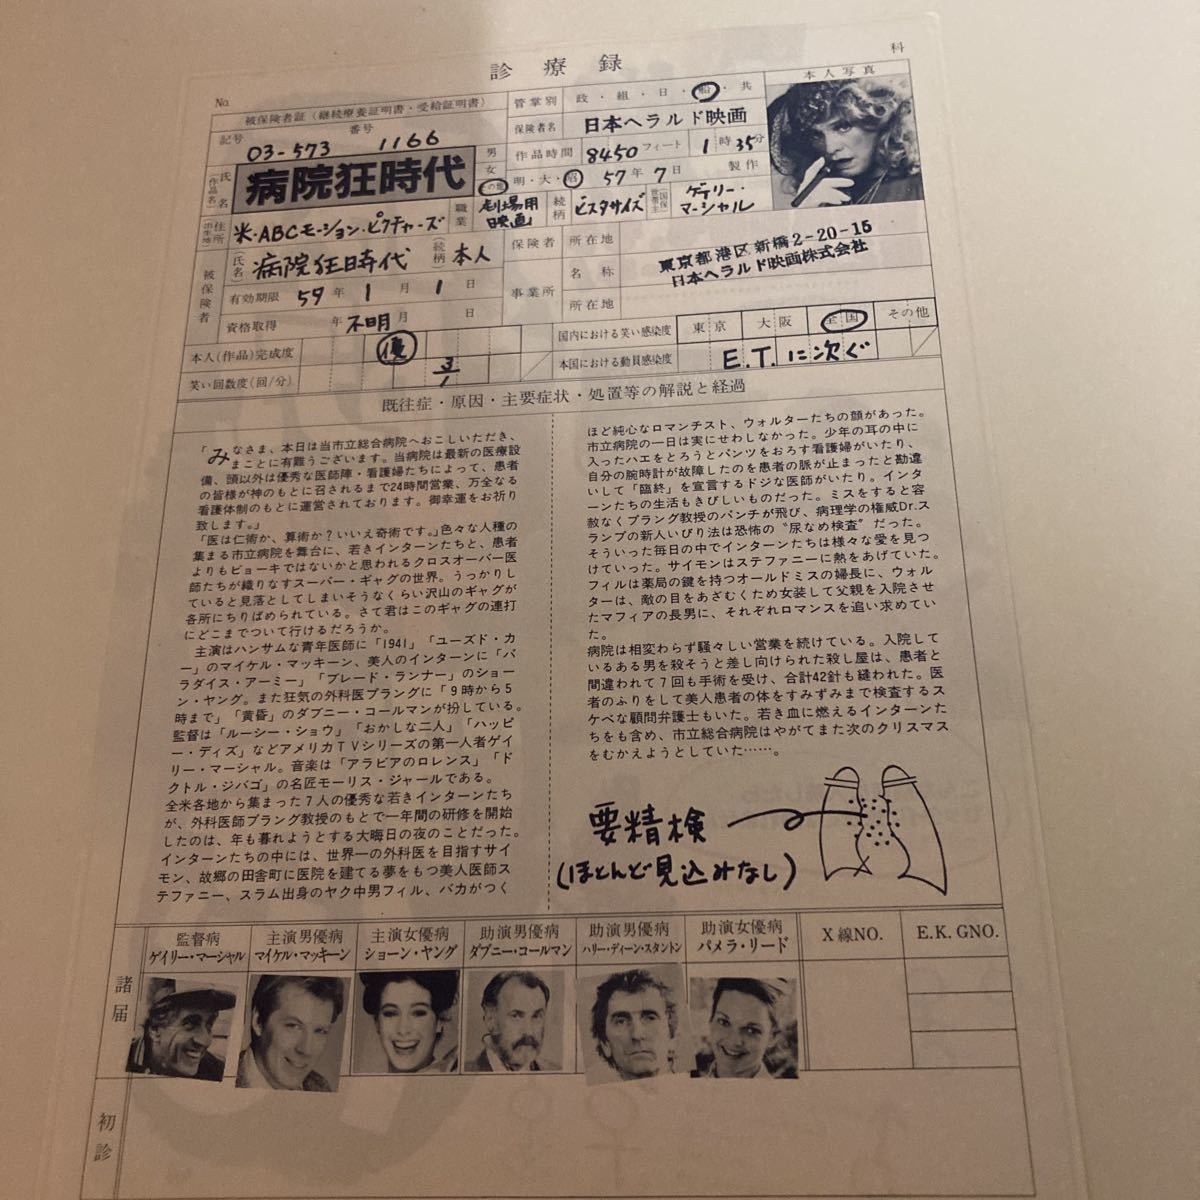 科
診療録
No.
被保険者証(継続療養証明書・受給証明書)
管掌別
政・組・日・船・共
本人写真
記号
番号
03-573
1166
保険者名
日本ヘラルド映画
氏名
(作品名)
病院狂時代
男
女
その他
作品時間
8450フィート
1時35分
明・大・昭
57年7日
製作
住所
米・ABCモーション・ピクチャーズ
職業
劇場用映画
続柄
ビスタサイズ
ゲイリー・マーシャル
被保険者
(氏名)
病院狂時代
(続柄)
本人
保険者
所在地
東京都港区新橋2-20-15
日本ヘラルド映画株式会社
有効期限
59年1月1日
事業所
名称
所在地
資格取得
年不明月 日
本人(作品)完成度
優
国内における笑い感染度
東京
大阪
全国
その他
笑い回数度(回/分)
3/1
本国における動員感染度
E.T.に次ぐ
既往症・原因・主要症状・処置等の解説と経過
「みなさま、本日は当市立総合病院へおこしいただき、
まことに有難うございます。当病院は最新の医療設
備、頭以外は優秀な医師陣・看護婦たちによって、患者
の皆様が神のもとに召されるまで24時間営業、万全なる
看護体制のもとに運営されております。御幸運をお祈り
致します。」
「医は仁術か、算術か?いいえ奇術です。」色々な人種の
集まる市立病院を舞台に、若きインターンたちと、患者
よりもビョーキではないかと思われるクロスオーバー医
師たちが織りなすスーパー・ギャグの世界。うっかりし
ていると見落としてしまいそうなくらい沢山のギャグが
各所にちりばめられている。さて君はこのギャグの連打
にどこまでついて行けるだろうか。
主演はハンサムな青年医師に「1941」「ユーズド・カ
ー」のマイケル・マッキーン、美人のインターンに「パ
ラダイス・アーミー」「ブレード・ランナー」のショー
ン・ヤング。また狂気の外科医プラングに「9時から5
時まで」「黄昏」のダブニー・コールマンが扮している。
監督は「ルーシー・ショウ」「おかしな二人」「ハッピ
ー・デイズ」などアメリカTVシリーズの第一人者ゲイ
リー・マーシャル。音楽は「アラビアのロレンス」「ド
クトル・ジバゴ」の名匠モーリス・ジャールである。
全米各地から集まった7人の優秀な若きインターンたち
が、外科医師プラング教授のもとで一年間の研修を開始
したのは、年も暮れようとする大晦日の夜のことだった。
インターンたちの中には、世界一の外科医を目指すサイ
モン、故郷の田舎町に医院を建てる夢をもつ美人医師ス
テファニー、スラム出身のヤク中男フィル、バカがつく
ほど純心なロマンチスト、ウォルターたちの顔があった。
市立病院の一日は実にせわしなかった。少年の耳の中に
入ったハエをとろうとパンツをおろす看護婦がいたり、
自分の腕時計が故障したのを患者の脈が止まったと勘違
いして「臨終」を宣言するドジな医師がいたり。インタ
ーンたちの生活もきびしいものだった。ミスをすると容
赦なくプラング教授のパンチが飛び、病理学の権威Dr.ス
ランプの新人いびり法は恐怖の“尿なめ検査”だった。
そういった毎日の中でインターンたちは様々な愛を見つ
けていった。サイモンはステファニーに熱をあげていた。
フィルは薬局の鍵を持つオールドミスの婦長に、ウォル
ターは、敵の目をあざむくため女装して父親を入院させ
たマフィアの長男に、それぞれロマンスを追い求めてい
た。
病院は相変わらず騒々しい営業を続けている。入院して
いるある男を殺そうと差し向けられた殺し屋は、患者と
間違われて7回も手術を受け、合計42針も縫われた。医
者のふりをして美人患者の体をすみずみまで検査するス
ケベな顧問弁護士もいた。若き血に燃えるインターンた
ちをも含め、市立総合病院はやがてまた次のクリスマス
をむかえようとしていた……。
要精検
(ほとんど見込みなし)
諸届
監督病
ゲイリー・マーシャル
主演男優病
マイケル・マッキーン
主演女優病
ショーン・ヤング
助演男優病
ダブニー・コールマン
助演男優病
ハリー・ディーン・スタントン
助演女優病
パメラ・リード
X線NO.
E.K.GNO.
初診